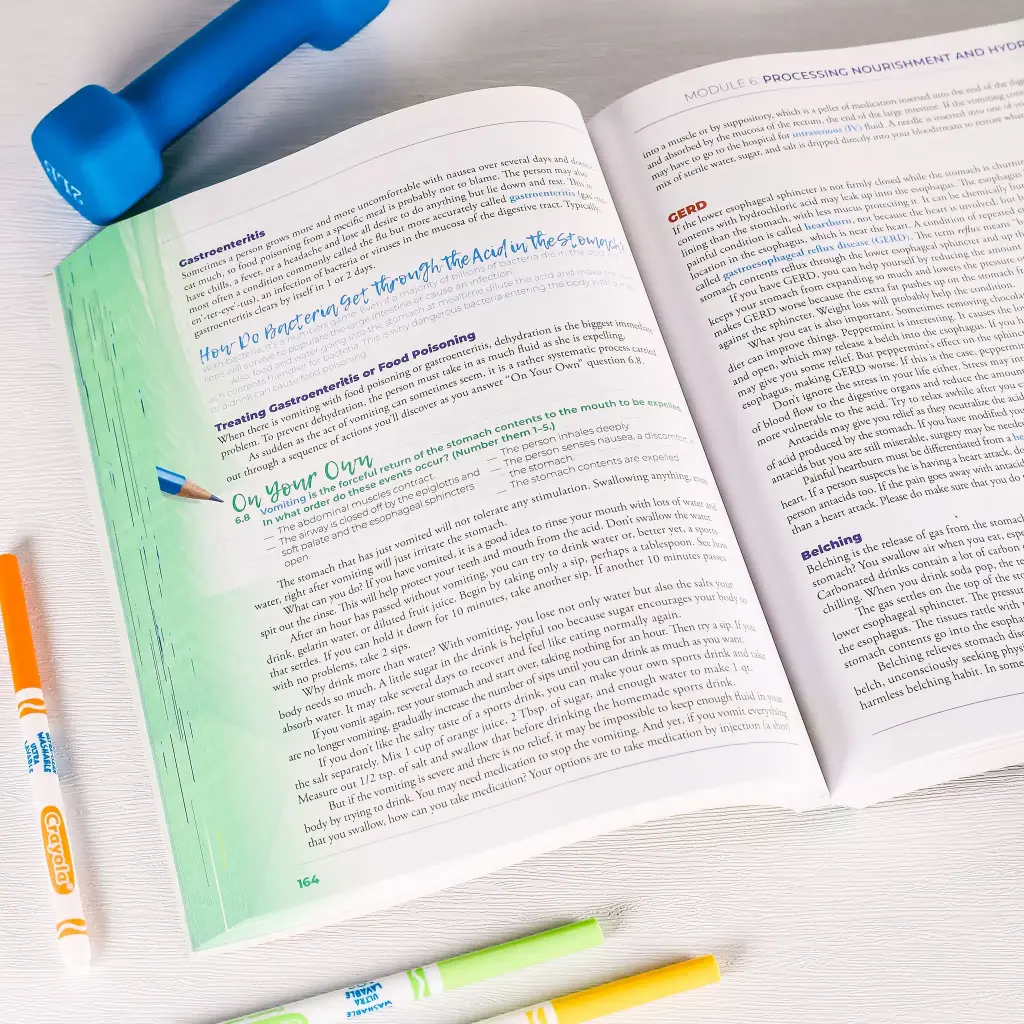 2 LB
Gastroenteritis
Sometimes a person grows more and more uncomfortable with nausea over several days and doesn't
eat much, so food poisoning from a specific meal is probably not to blame. The person may also
have chills, a fever, or a headache and lose all desire to do anything but lie down and rest. This is
most often a condition commonly called the flu but more accurately called gastroenteritis
en'-ter-eye'-tus), an infection of bacteria or viruses in the mucosa of the digestive tract. Typically,
gastroenteritis clears by itself in 1 or 2 days.
How Do Bacteria Get Through the Acid in the Stomach?
Treating Gastroenteritis or Food Poisoning
When there is vomiting with food poisoning or gastroenteritis, dehydration is the biggest immediate
problem. To prevent dehydration, the person must take in as much fluid as she is expelling.
As sudden as the act of vomiting can sometimes seem, it is a rather systematic process carried
out through a sequence of actions you'll discover as you answer "On Your Own" question 6.8.
On Your Own
6.8 Vomiting is the forceful return of the stomach contents to the mouth to be expelled.
In what order do these events occur? (Number them 1–5.)
__ The abdominal muscles contract.
__ The airway is closed off by the epiglottis and
soft palate and the esophageal sphincters
open.
__ The person inhales deeply.
__ The person senses nausea, a discomfort
the stomach.
__ The stomach contents are expelled
The stomach that has just vomited will not tolerate any stimulation. Swallowing anything, even
water, right after vomiting will just irritate the stomach.
What can you do? If you have vomited, it is a good idea to rinse your mouth with lots of water and
spit out the rinse. This will help protect your teeth and mouth from the acid. Don't swallow the water.
After an hour has passed without vomiting, you can try to drink water or, better yet, a sports
drink, gelatin water, or diluted fruit juice. Begin by taking only a sip, perhaps a tablespoon. See how
that settles. If you can hold it down for 10 minutes, take another sip. If another 10 minutes passes
with no problems, take 2 sips.
Why drink more than water? With vomiting, you lose not only water but also the salts your
body needs so much. A little sugar in the drink is helpful too because sugar encourages your body to
absorb water. It may take several days to recover and feel like eating normally again.
If you vomit again, rest your stomach and start over, taking nothing for an hour. Then try a sip. If you
are no longer vomiting, gradually increase the number of sips until you can drink as much as you want.
If you don't like the salty taste of a sports drink, you can make your own sports drink and take
the salt separately. Mix 1 cup of orange juice, 2 Tbsp. of sugar, and enough water to make 1 qt.
Measure out 1/2 tsp. of salt and swallow that before drinking the homemade sports drink.
But if the vomiting is severe and there is no relief, it may be impossible to keep enough fluid in your
body by trying to drink. You may need medication to stop the vomiting. And yet, if you vomit everything
that you swallow, how can you take medication? Your options are to take medication by injection (a shot)
164
MODULE 6 PROCESSING NOURISHMENT AND HYDR
into a muscle or by suppository, which is a pellet of medication inserted into the end of the
and absorbed by the mucosa of the rectum, the end of the large intestine. If the vomiting
may have to go to the hospital for intravenous (IV) fluid. A needle is inserted into one of
mix of sterile water, sugar, and salt is dripped directly into your bloodstream to restore
GERD
If the lower esophageal sphincter is not firmly closed while the stomach is churning
contents with hydrochloric acid may leak up into the esophagus. The esophagus
ing than the stomach, with less mucus protecting it. It can be chemically
painful condition is called heartburn, not because the heart is involved, but
location in the esophagus, which is near the heart. A condition of repeated
called gastroesophageal reflux disease (GERD). The term reflux means
stomach contents reflux through the lower esophageal sphincter and up
If you have GERD, you can help yourself by reducing the amount
keeps your stomach from expanding so much and lowers the pressure
makes GERD worse because the extra fat pushes up on the stomach
against the sphincter. Weight loss will probably help the condition.
What you eat is also important. Sometimes removing chocolate
diet can improve things. Peppermint is interesting. It causes the
and open, which may release a belch into the esophagus. If you
may give you some relief. But peppermint's effect on the sphincter
esophagus, making GERD worse. If this is the case, peppermint
Don't ignore the stress in your life either. Stress
of blood flow to the digestive organs and reduce the amount
more vulnerable to the acid. Try to relax awhile after you
Antacids may give you relief as they neutralize the acid
of acid produced by the stomach. If you have modified your
antacids but you are still miserable, surgery may be needed
Painful heartburn must be differentiated from a
heart. If a person suspects he is having a heart attack,
person antacids too. If the pain goes away with
than a heart attack. Please do make sure that you do
Belching
Belching is the release of gas from the stomach
stomach? You swallow air when you eat,
Carbonated drinks contain a lot of carbon
chilling. When you drink soda pop, the
The gas settles on the top of the
lower esophageal sphincter. The pressure
the esophagus. The tissues rattle with
stomach contents go into the
Belching relieves stomach
belch, unconsciously seeking
harmless belching habit. In some
ULTRA
WASHABLE
Crayola
ULTRA
WASHABLE